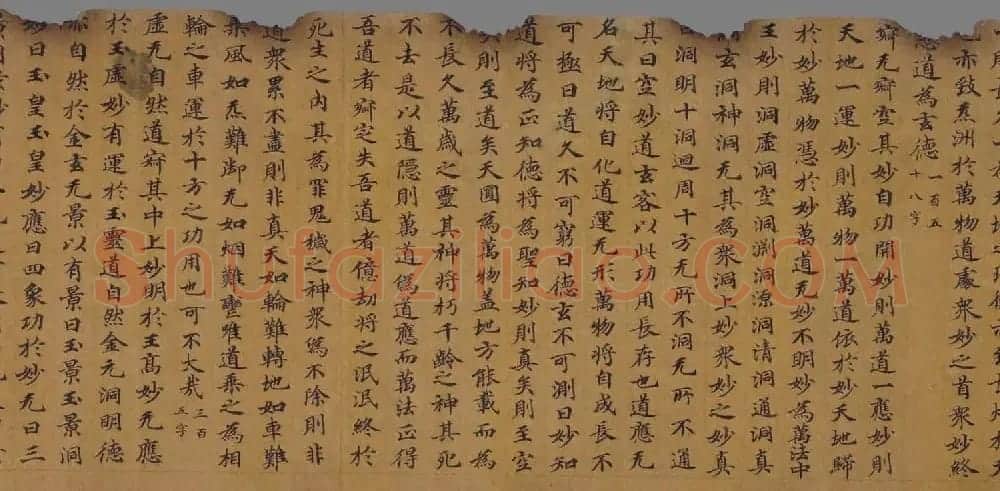 一亦致炁洲於萬物道處衆妙之首衆妙終
道為玄德一百五十八字
寂无寂空其妙自功開妙則萬道一應妙則
天地一運妙則萬物一萬道依於妙天地歸
於妙萬物憑於妙萬道无妙不明妙為萬法中
王妙則洞虛洞空洞渕洞源洞清洞通洞真
玄洞神洞无其為衆洞上妙衆妙之真
洞明十洞迴周十方无所不洞无所不通
其曰空妙道玄容以此功用長存也道應无
名天地將自化道運无形萬物將自成長不
可極曰道久不可窮曰德玄不可測曰妙知
道將為正知德將為聖知妙則真矣則至空
則至道矣天圓為萬物盖地方能載而為
不長久萬歲之靈其神將朽千齡之神其死
不去是以道隱則萬道為道應而萬法正得
吾道者寂定失吾道者億劫將之泯泯終於
死生之內其為罪鬼穢之神衆為不除則非
迴衆累不盡則非真天如輪難轉地如車難
乘風如炁難御无如烟難璽唯道乘之為相
輪之車運於十方之功用也可不大㢤三百五字
虛无自然道寂其中上妙明於王髙妙无應
於玉虛妙有運於玉靈道自然金无洞明德
自然於金玄无景以有景曰玉景玉景洞
妙曰玉皇玉皇妙應曰四象功於妙无曰三
Shufaziliao.COM